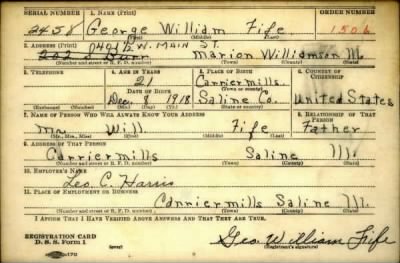 SERIAL NUMBER 1. NAME (Print) ORDER NUMBER
2458 George William Fife 1506
(First) (Middle) (Last)
2. ADDRESS (Print) W. MAIN ST.
Marion Williamson Ill.
(Number and street or R. F. D. number) (Town) (County) (State)
3. TELEPHONE 4. AGE IN YEARS 5. PLACE OF BIRTH 6. COUNTRY OF CITIZENSHIP
21 Carriermills.
DATE OF BIRTH (Town or county)
Dec. 1918 Saline Co. United States
(Exchange) (Number) (Mo.) (Day) (Yr.) (State or country)
7. NAME OF PERSON WHO WILL ALWAYS KNOW YOUR ADDRESS 8. RELATIONSHIP OF THAT PERSON
Mr. Will Fife Father
(Mr., Mrs., Miss) (First) (Middle) (Last)
9. ADDRESS OF THAT PERSON
Carriermills Saline Ill.
(Number and street or R. F. D. number) (Town) (County) (State)
10. EMPLOYER'S NAME
Leo C. Harris
11. PLACE OF EMPLOYMENT OR BUSINESS
Carriermills Saline Ill.
(Number and street or R. F. D. number) (Town) (County) (State)
I AFFIRM THAT I HAVE VERIFIED ABOVE ANSWERS AND THAT THEY ARE TRUE.
REGISTRATION CARD
D. S. S. Form 1 (over) Geo. William Fife
(Registrant's signature)